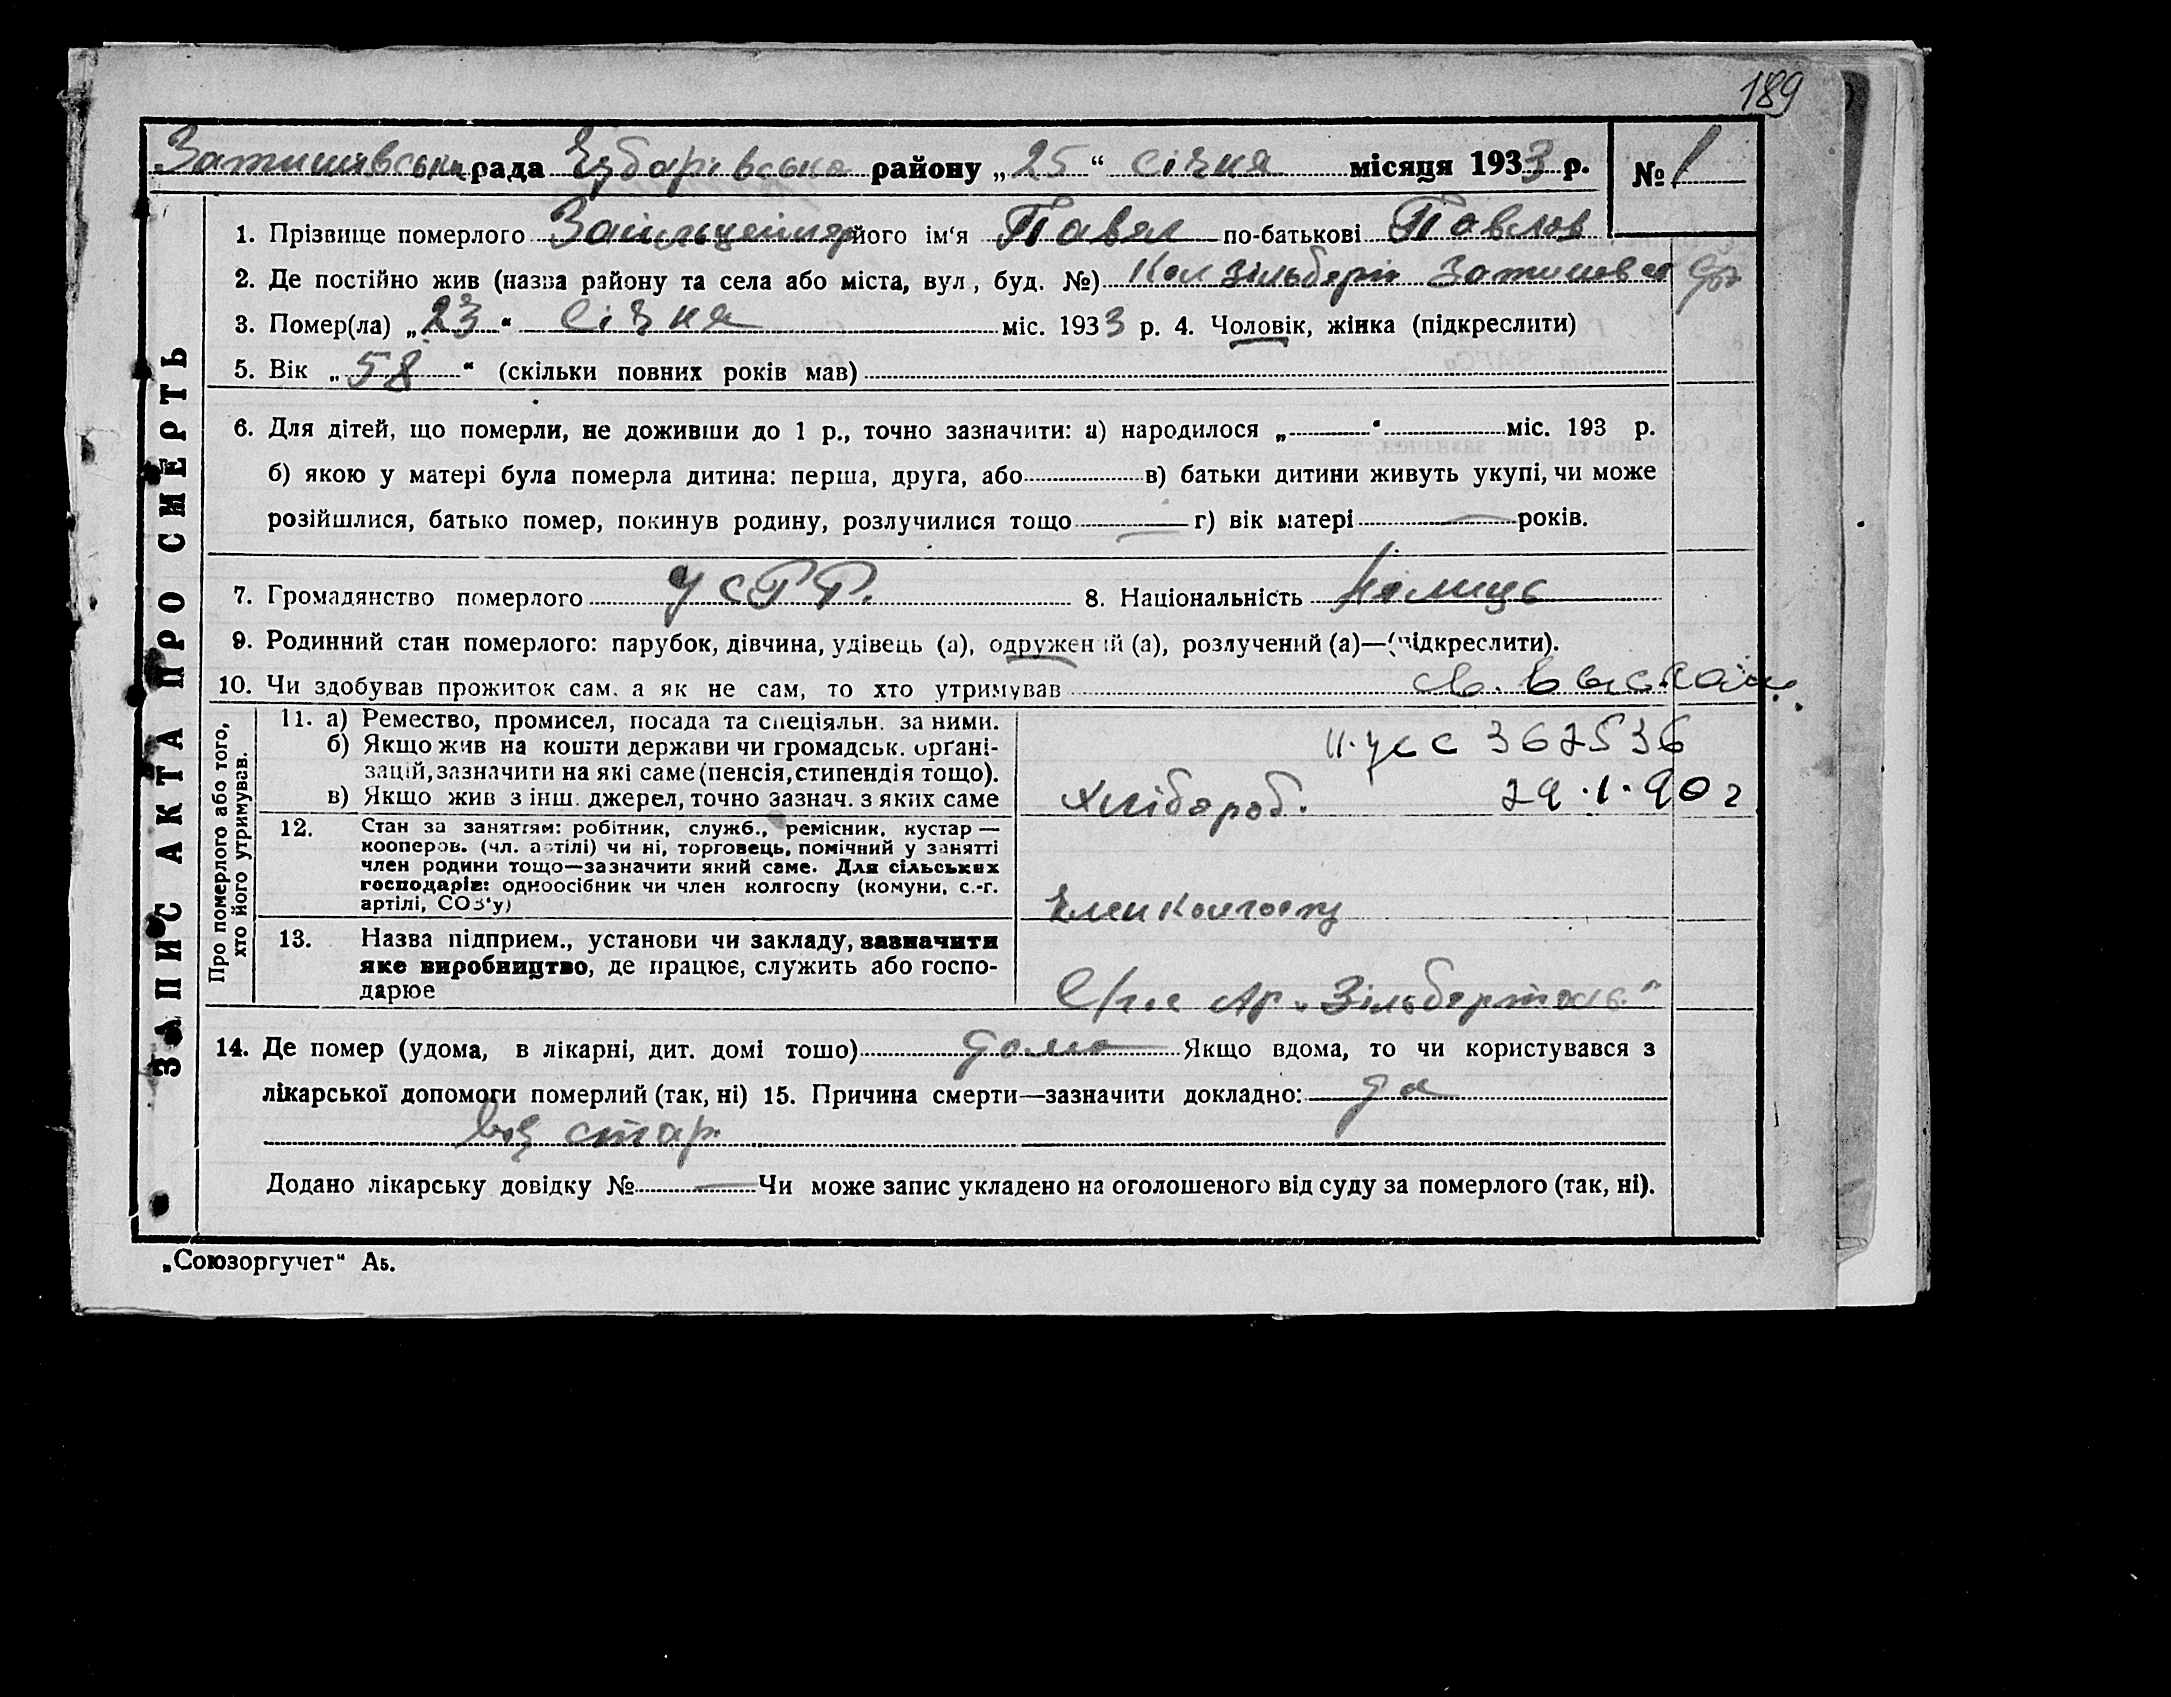 189
Затишівська рада Чубарівська району „25“ січня місяця 1933 р. № 1
ЗАПИС АКТА ПРО СМЕРТЬ
1. Прізвище померлого його ім'я Павел по-батькові Павлов
2. Де постійно жив (назва району та села або міста, вул, буд. №) Кол Зільберта
3. Помер(ла) „23“ січня міс. 1933 р. 4. Чоловік, жінка (підкреслити)
5. Вік „58“ (скільки повних років мав)
6. Для дітей, що померли, не доживши до 1 р., точно зазначити: а) народилося „ “ міс. 193 р.
б) якою у матері була померла дитина: перша, друга, або в) батьки дитини живуть укупі, чи може
розійшлися, батько помер, покинув родину, розлучилися тощо — г) вік матері — років.
7. Громадянство померлого УСРР. 8. Національність Німець
9. Родинний стан померлого: парубок, дівчина, удівець (а), одружений (а), розлучений (а)—(підкреслити).
10. Чи здобував прожиток сам, а як не сам, то хто утримував
Про померлого або того,
хто його утримував.
11. а) Ремество, промисел, посада та спеціяльн. за ними.
б) Якщо жив на кошти держави чи громадськ. орґані-
зацій, зазначити на які саме (пенсія, стипендія тощо).
в) Якщо жив з інш. джерел, точно зазнач. з яких саме
362536
Хлібороб. 29.1.90 г
12. Стан за заняттям: робітник, служб., ремісник, кустар —
кооперов. (чл. артілі) чи ні, торговець, помічний у занятті
член родини тощо—зазначити який саме. Для сільських
господарів: одноосібник чи член колгоспу (комуни, с.-г.
артілі, СОЗ'у)
Член колгоспу
13. Назва підприєм., установи чи закладу, зазначити
яке виробництво, де працює, служить або госпо-
дарює
Ар „Зільберталь“
14. Де помер (удома, в лікарні, дит. домі тощо) дома Якщо вдома, то чи користувався з
лікарської допомоги померлий (так, ні) 15. Причина смерти—зазначити докладно: да
від стар.
Додано лікарську довідку № — Чи може запис укладено на оголошеного від суду за померлого (так, ні).
„Союзоргучет“ А5.